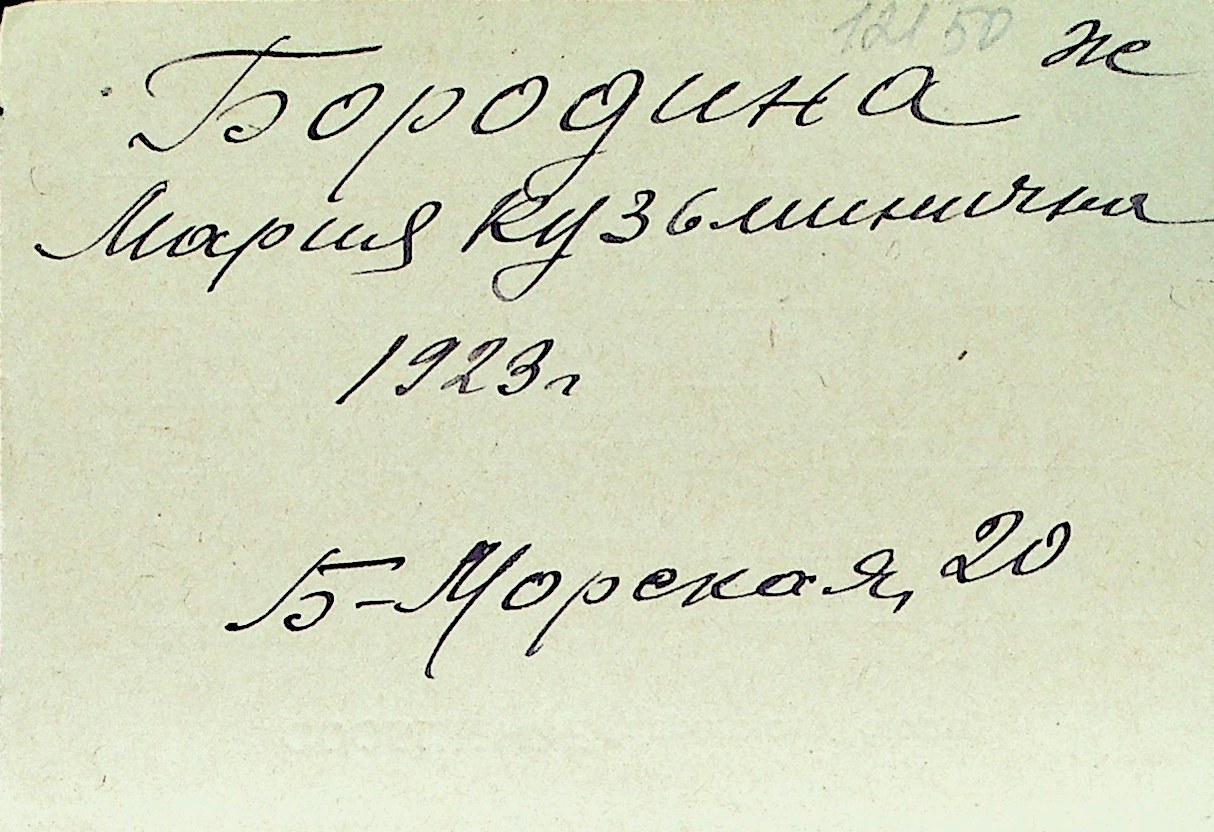 12150
Бородина ж
Мария Кузьминична
1923г
Б-Морская, 20